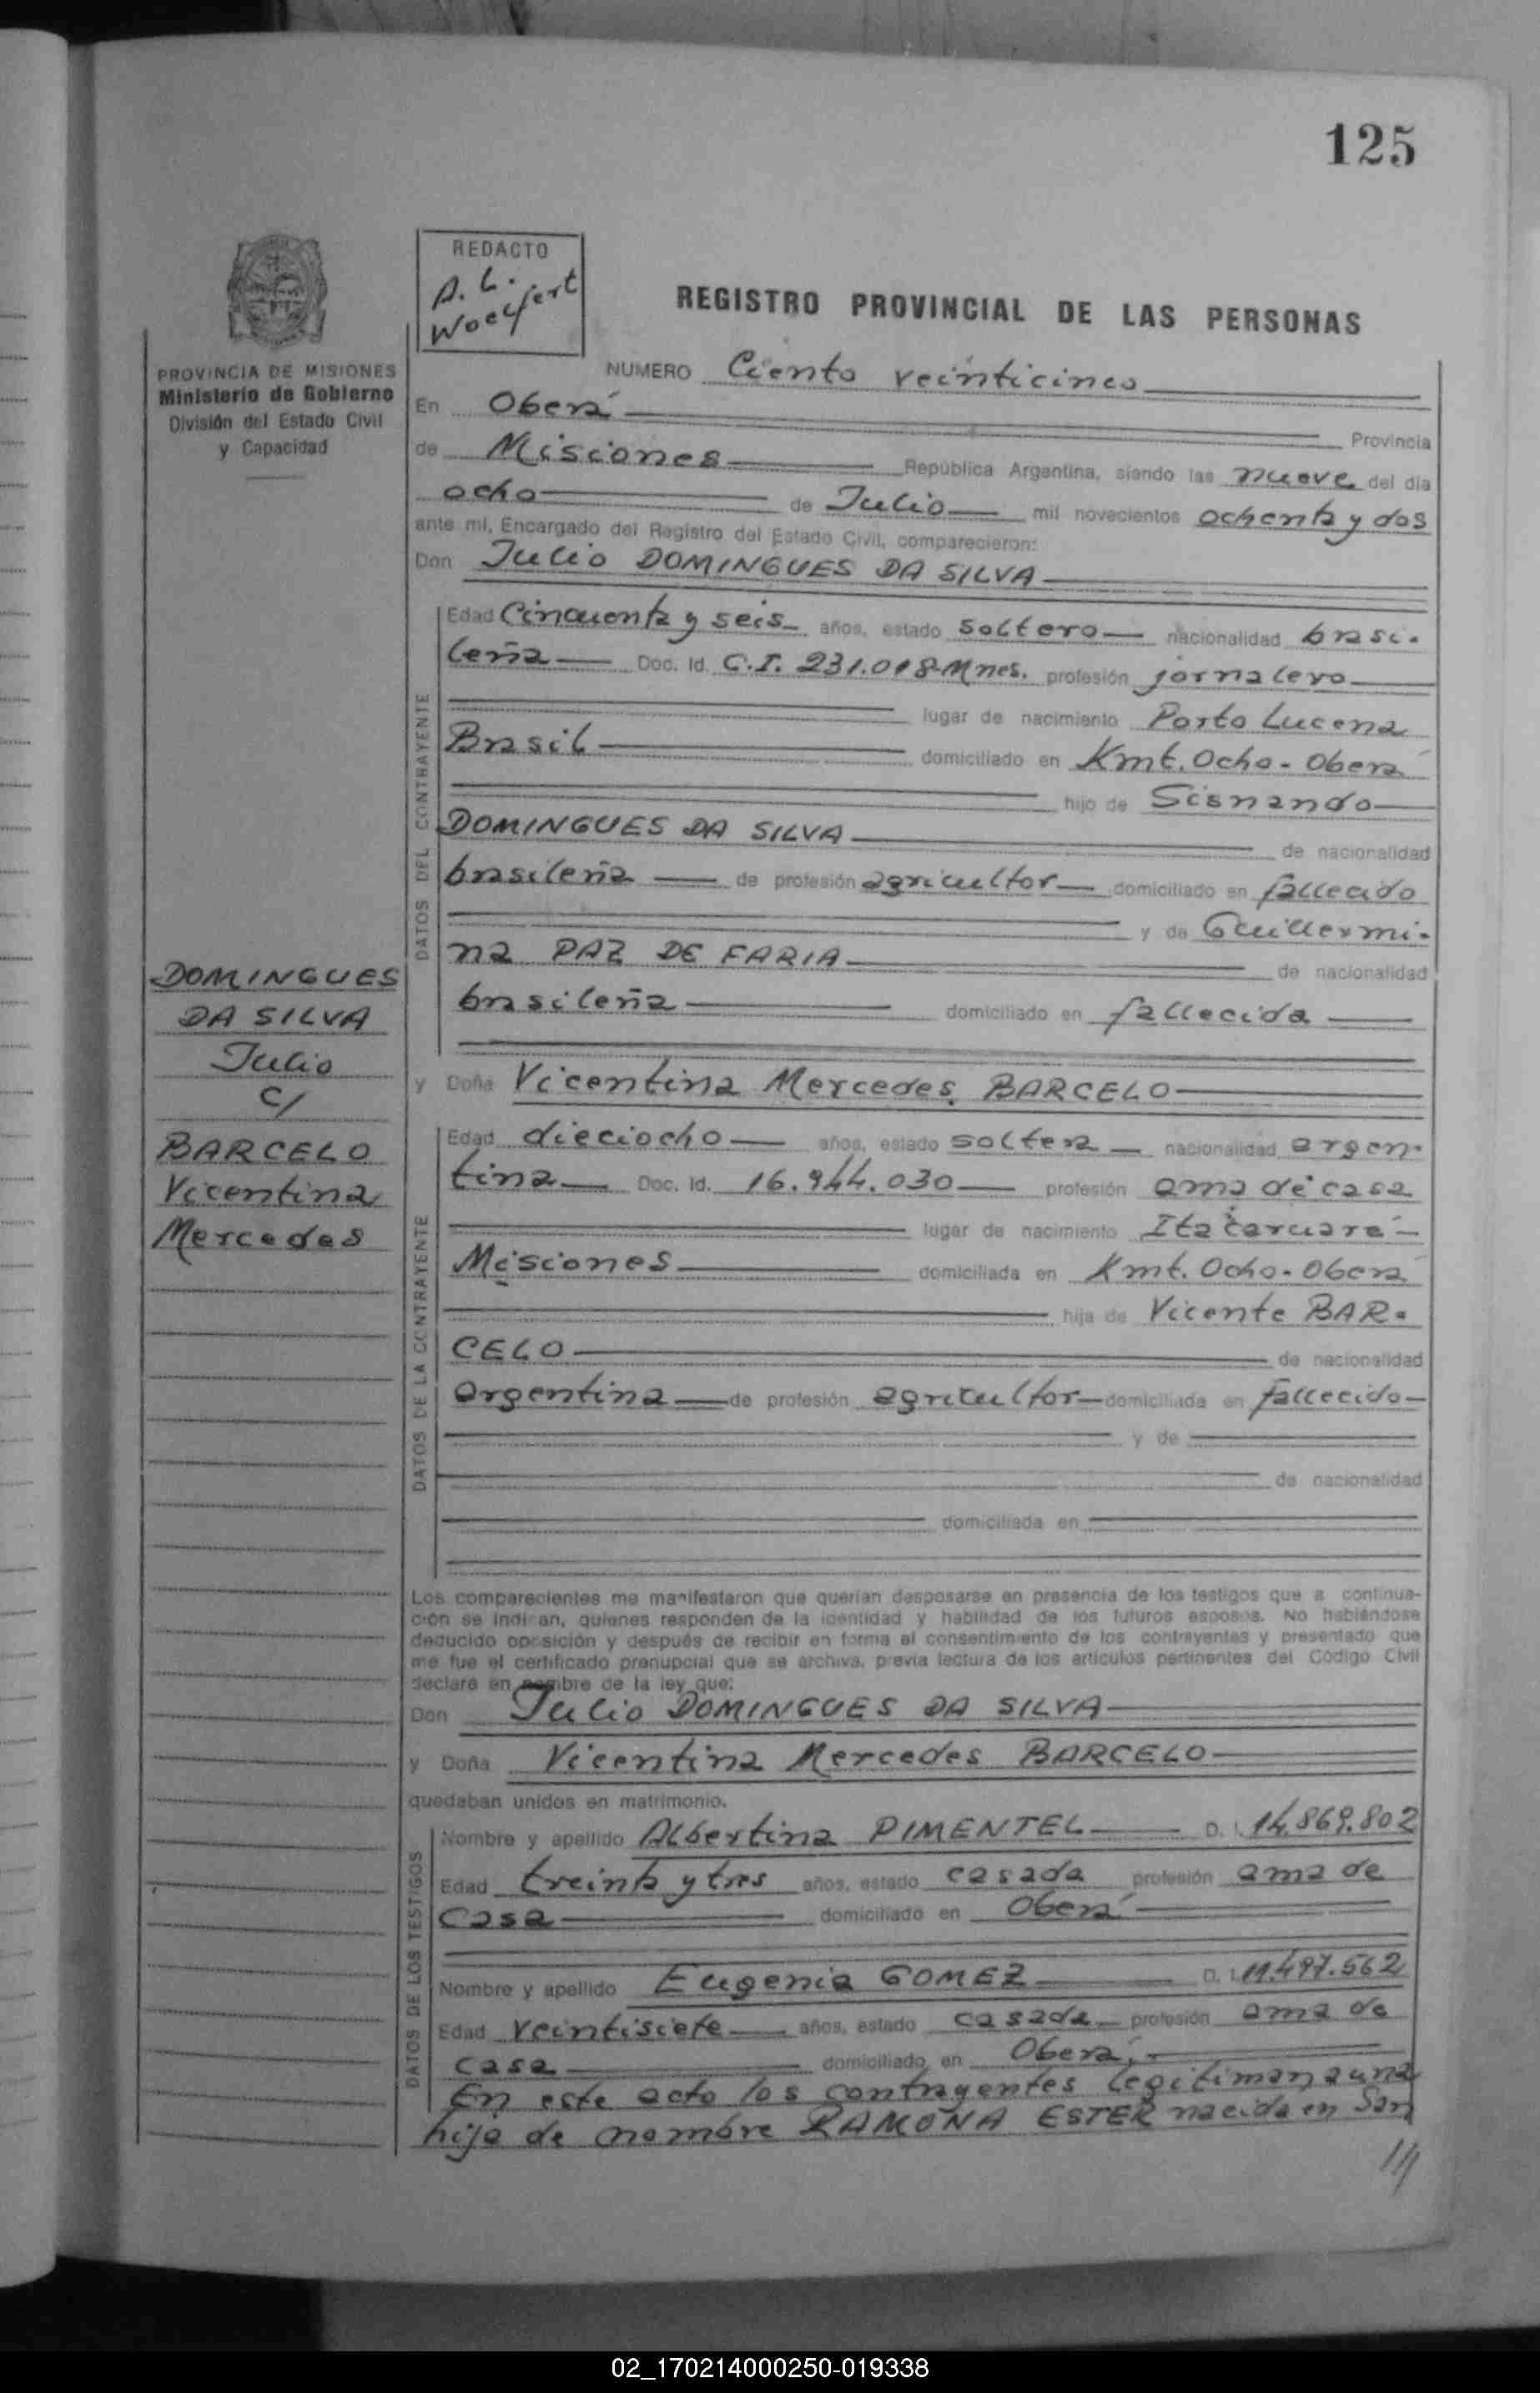 125
REDACTO
A. L.
Woelfert
REGISTRO PROVINCIAL DE LAS PERSONAS
PROVINCIA DE MISIONES
Ministerio de Gobierno
División del Estado Civil
y Capacidad
NUMERO Ciento veinticinco
En Oberá Provincia
de Misiones República Argentina, siendo las nueve del día
ocho de Julio mil novecientos ochenta y dos
ante mí, Encargado del Registro del Estado Civil, comparecieron:
Don Julio DOMINGUES DA SILVA
DATOS DEL CONTRAYENTE
Edad Cincuenta y seis años, estado soltero nacionalidad brasi-
leña Doc. Id. C.I. 231.018-Mnes. profesión jornalero
lugar de nacimiento Porto Lucena
Brasil domiciliado en Kmt. Ocho - Oberá
hijo de Sisnando
DOMINGUES DA SILVA de nacionalidad
brasileña de profesión agricultor domiciliado en fallecido
y de Guillermi-
na PAZ DE FARIA de nacionalidad
brasileña domiciliado en fallecida
DOMINGUES
DA SILVA
Julio
C/
BARCELO
Vicentina
Mercedes
y Doña Vicentina Mercedes BARCELO
DATOS DE LA CONTRAYENTE
Edad dieciocho años, estado soltera nacionalidad argen-
tina Doc. Id. 16.944.030 profesión ama de casa
lugar de nacimiento Itacaruaré-
Misiones domiciliada en Kmt. Ocho - Oberá
hija de Vicente BAR-
CELO de nacionalidad
argentina de profesión agricultor domiciliada en fallecido
y de
de nacionalidad
domiciliada en
Los comparecientes me manifestaron que querían desposarse en presencia de los testigos que a continua-
ción se indican, quienes responden de la identidad y habilidad de los futuros esposos. No habiéndose
deducido oposición y después de recibir en forma el consentimiento de los contrayentes y presentado que
me fue el certificado prenupcial que se archiva, previa lectura de los artículos pertinentes del Código Civil
declaro en nombre de la ley que:
Don Julio DOMINGUES DA SILVA
y Doña Vicentina Mercedes BARCELO
quedaban unidos en matrimonio.
DATOS DE LOS TESTIGOS
Nombre y apellido Albertina PIMENTEL D. I. 14.869.802
Edad treinta y tres años, estado casada profesión ama de
casa domiciliado en Oberá
Nombre y apellido Eugenia GOMEZ D. I. 11.497.562
Edad veintisiete años, estado casada profesión ama de
casa domiciliado en Oberá,
En este acto los contrayentes legitiman a una
hija de nombre RAMONA ESTER nacida en San
02_170214000250-019338